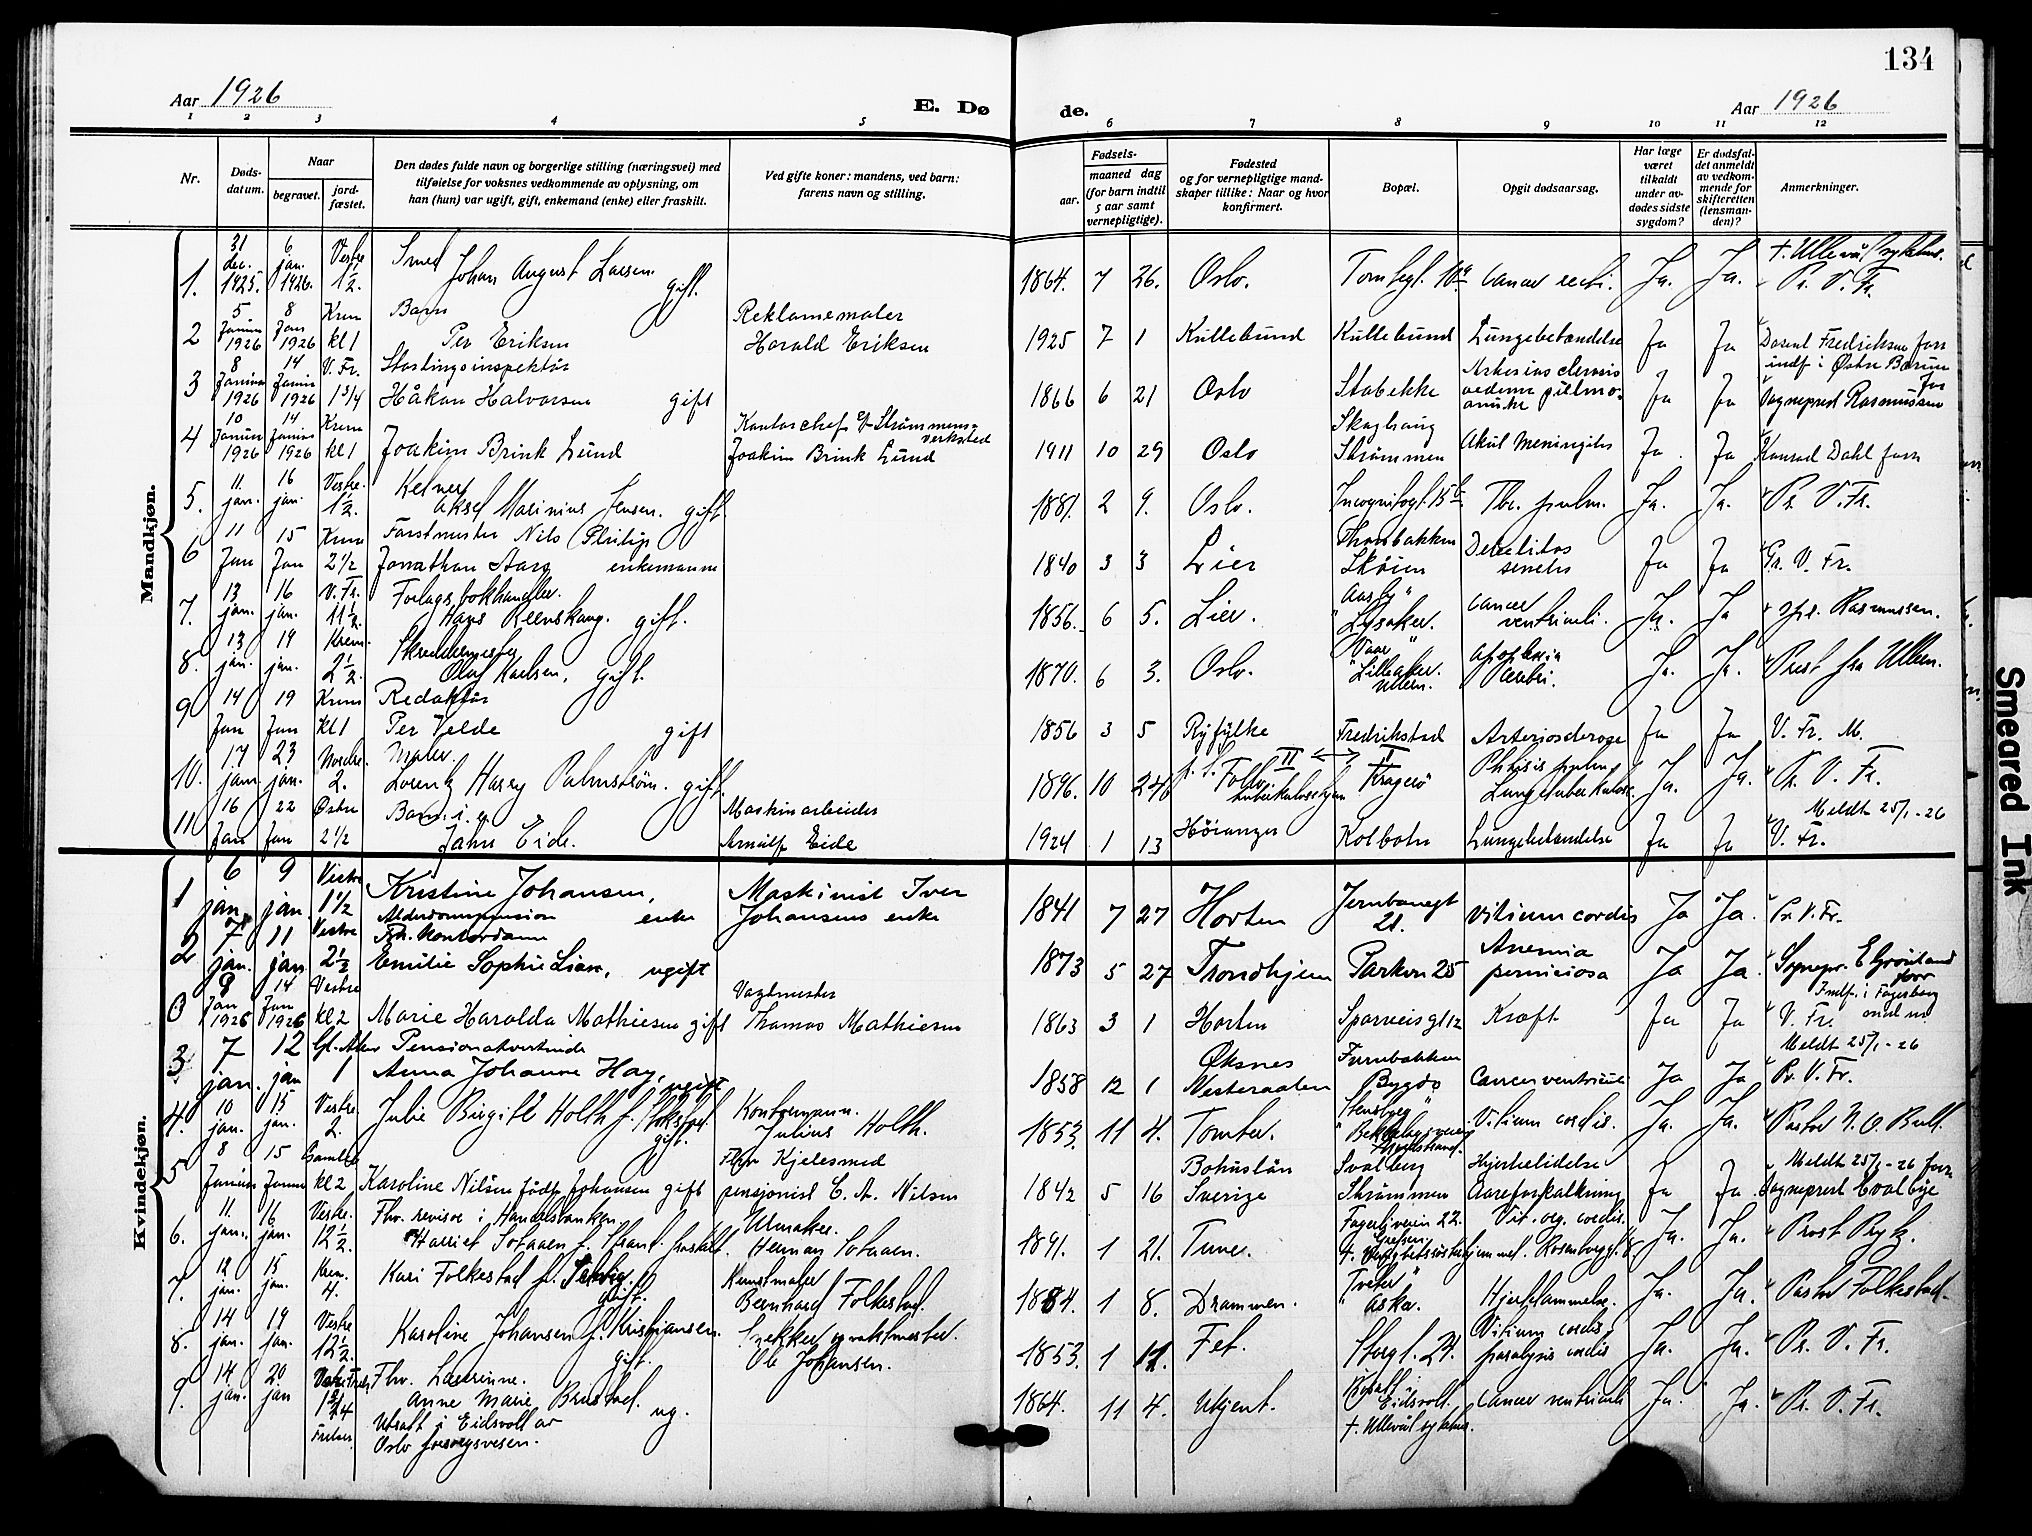 134
Aar 1926
E. Døde.
Aar 1926
1 2 3 4 5 6 7 8 9 10 11 12
Nr.
Døds-datum.
Naar
begravet.
jord-fæstet.
Den dødes fulde navn og borgerlige stilling (næringsvei) med
tilføielse for voksnes vedkommende av oplysning, om
han (hun) var ugift, gift, enkemand (enke) eller fraskilt.
Ved gifte koner: mandens, ved barn:
farens navn og stilling.
Fødsels-
aar. maaned dag
(for barn indtil
5 aar samt
vernepligtige).
Fødested
og for vernepligtige mand-
skaper tillike: Naar og hvor
konfirmert.
Bopæl.
Opgit dødsaarsag.
Har læge
været
tilkaldt
under av-
dødes sidste
sygdom?
Er dødsfal-
det anmeldt
av vedkom-
mende for
skifteretten
(lensman-
den)?
Anmerkninger.
Mandkjøn.
1. 31 dec. 1925. 6 jan. 1926. Vestre 1½. Smed Johan August Larsen. gift. 1864. 7 26. Oslo. cancer recti. Ja. Ja. † Ullevål sykehus. Pr. V. Fr.
2 5 Januar 1926 8 Jan 1926 Krem kl 1 Barn Per Eriksen Reklamemaler Harald Eriksen 1925 7 1 Kullebund Kullebund Lungebetændelse Ja Ja
3 8 Januar 1926 14 Januar 1926 V. Fr. 1 3/4 Stortingsinspektør Håkon Halvorsen gift 1866 6 21 Oslo Stabekke Ja Ja indf i Østre Bærum Sogneprest Rasmussen
4 10 Januar 1926 14 Januar 1926 Krem kl 1 Joakim Brink Lund Kontorchef v Strømmens Verksted Joakim Brink Lund 1911 10 29 Oslo Skaghaug Strømmen Akut Meningitis Ja Ja Konrad Dahl forr
5. 11. jan. 16 jan. Vestre. 1½. Kelner Aksel Marinius Jensen. gift. 1881. 2 9. Oslo. Tbc. pulm. Ja. Ja. Pr. V. Fr.
6 11 Jan 15 Jan Krem 2 1/2 Forstmester Nils Philip Jonathan Aars enkemann 1840 3 3 Lier Skøien Ja Ja Pr. V. Fr.
7. 13 jan. 16 jan. V. Fr. 11½. Forlagsbokhandler. Hans Reenskaug. gift. 1856. 6 5. Lier. Lysaker. cancer ventriculi. Ja. Ja Rasmussen.
8. 13 jan. 19 jan. Krem. 2½. Skreddermester Olaf Karlsen, gift. 1870. 6 3. Oslo. Lilleaker. Ullern. apoplexia cerebri. Ja. Ja. Prest fra Ullern.
9 14 Jan 19 Jan Krem kl 1 Redaktør Per Velde gift 1856 3 5 Ryfylke Fredrikstad Ja Ja V. Fr. M.
10. 17 jan. 23 jan. Nordre. 2. Maler. Lorentz Harry Palmstrøm. gift. 1896. 10 II ↔ I Kragerø Phtisis pulm. Lungetuberkulose. Ja. Ja. Pr. V. Fr.
11 16 Jan 22 Jan Østre 2 1/2 Barn Jahn Eide. Maskinarbeider Arnulf Eide 1924 1 13 Høianger Kolbotn Lungebetændelse Ja Ja Meldt 25/1-26 V. Fr.
Kvindekjøn.
1 6 jan. 9 jan. Vestre 1 1/2 Kristine Johansen, Alderdomspension enke Maskinist Iver Johansens enke 1841 7 27 Horten Jernbanegt 21. vitium cordis Ja Ja. Pr. V. Fr.
2 7 jan. 11 jan Vestre 2½ Fhv. Kontordame Emilie Sophie Lian, ugift 1873 5 27 Trondhjem Parkvn 25 Anemia perniciosa Ja Ja. Sognepr. E Grønland forr
9 Jan 1926 14 Jan 1926 Vestre kl 2 Marie Haralda Mathiesen gift Vagtmester Thomas Mathiesen 1863 3 1 Horten Sporveisgt 12 Kræft Ja Ja Indf. i Fagerborg V. Fr. Meldt 25/1-26
3 7 jan. 12 jan Gl. Aker 1 Pensionatvertinde Anna Johanne Hay, ugift 1858 12 1 Øksnes Vesteraalen Furubakken Bygdø Cancer ventriculi Ja Ja Pr. V. Fr.
4. 10 jan. 15 jan. Vestre. 2. Julie Birgitte Holth gift. Kontormann. Julius Holth. 1853. 11 4. Tomter. Vitium cordis. Ja. Ja. Pastor Bull.
5 8 Januar 15 Januar Gamle kl 2 Karoline Nilsen født Johansen gift Fhv Kjelesmed pensjonist C. A. Nilsen 1842 5 16 Bohuslän Sverige Svalberg Strømmen Hjertelidelse Aareforkalkning Ja Ja Meldt 25/1-26 forr Sogneprest Coalbye
6. 11. jan. 16 jan. Vestre. 12½. Fhv. revisor i Handelsbanken Harriet Sotaaen f. Strand. fraskilt. Urmaker. Herman Sotaaen. 1891. 1 21. Tune. Fagerliveien 22. Grefsen. Vit. org. cordis. Ja. Ja. Prost
7. 12 jan. 15 jan. Krem. 4. Kari Folkestad f. gift. Kunstmaler Bernhard Folkestad. 1884. 1 8. Drammen. Asker. Hjertelammelse. Ja. Ja. Pastor Folkestad.
8. 14 jan. 19 jan. Vestre 12½. Karoline Johansen f. Kristiansen. gift. Snekker og vaktmester. Ole Johansen. 1853. 1 Fet. Storgt. 24. Vitium cordis, paralysis cordis Ja. Ja. Pr. V. Fr.
9. 14 jan. 20 jan Fhv. Lærerinne. Anne Marie Brustad. ug. Utsatt i Eidsvoll av Oslo forsorgsvesen. 1864. 11 4. Ukjent. Eidsvoll. † Ullevål sykehus. cancer ventriculi Ja. Ja. Pr. V. Fr.
Smeared Ink